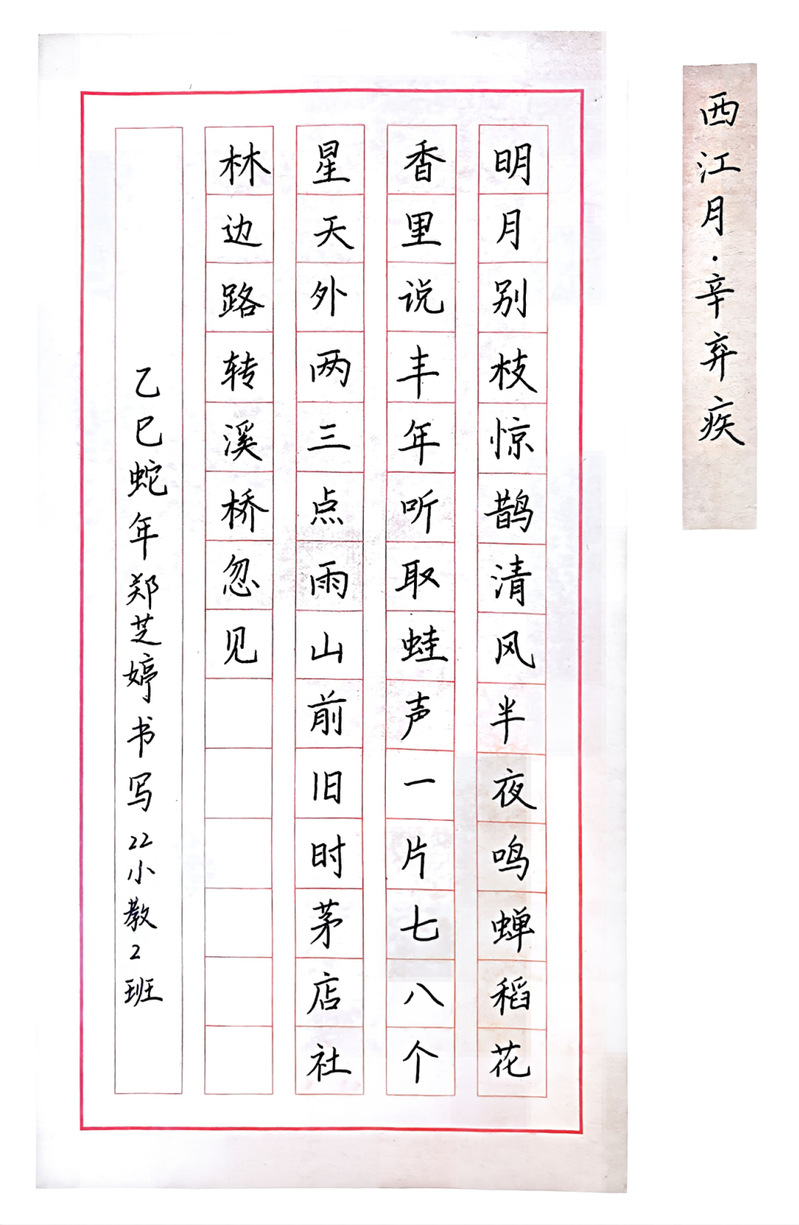 西江月·辛弃疾
明月别枝惊鹊清风半夜鸣蝉稻花
香里说丰年听取蛙声一片七八个
星天外两三点雨山前旧时茅店社
林边路转溪桥忽见
乙巳蛇年郑芝婷书写22小教2班